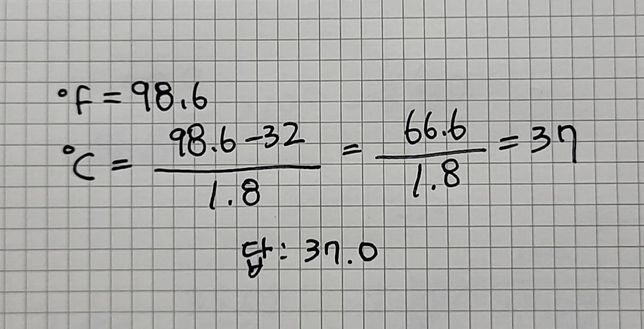 °F = 98.6
°C = (98.6-32)/1.8 = 66.6/1.8 = 37
답: 37.0